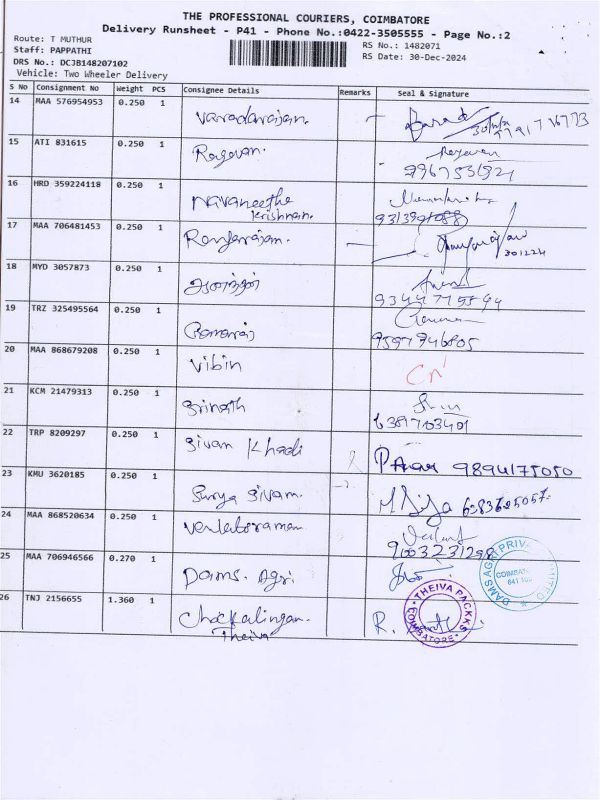 THE PROFESSIONAL COURIERS, COIMBATORE
Delivery Runsheet - P41 - Phone No.:0422-3505555 - Page No.:2
Route: T MUTHUR
RS No.: 1482071
Staff: PAPPATHI
RS Date: 30-Dec-2024
DRS No.: DCJB148207102
Vehicle: Two Wheeler Delivery
S No Consignment No Weight PCS Consignee Details Remarks Seal & Signature
14 MAA 576954953 0.250 1 Varadarajan.
15 ATI 831615 0.250 1 Ragavan. Ragavan
9967531921
16 HRD 359224118 0.250 1 Navaneetha
Krishnan.
17 MAA 706481453 0.250 1 Rangarajan.
301224
18 MYD 3057873 0.250 1 ஆனந்தன்
19 TRZ 325495564 0.250 1
9597946805
20 MAA 868679208 0.250 1 Vibin
21 KCM 21479313 0.250 1 Srinath
6381703401
22 TRP 8209297 0.250 1 Sivan Khadi 9894175050
23 KMU 3620185 0.250 1 Surya Sivam. 6283625057
24 MAA 868520634 0.250 1 Venkatoraman
9003231298
25 MAA 706946566 0.270 1 Dams. Agri
DAMS AGRI PRIVATE LIMITED
COIMBATORE
26 TNJ 2156655 1.360 1 Chockalingam.
Theiva
THEIVA PACKKS
COIMBATORE